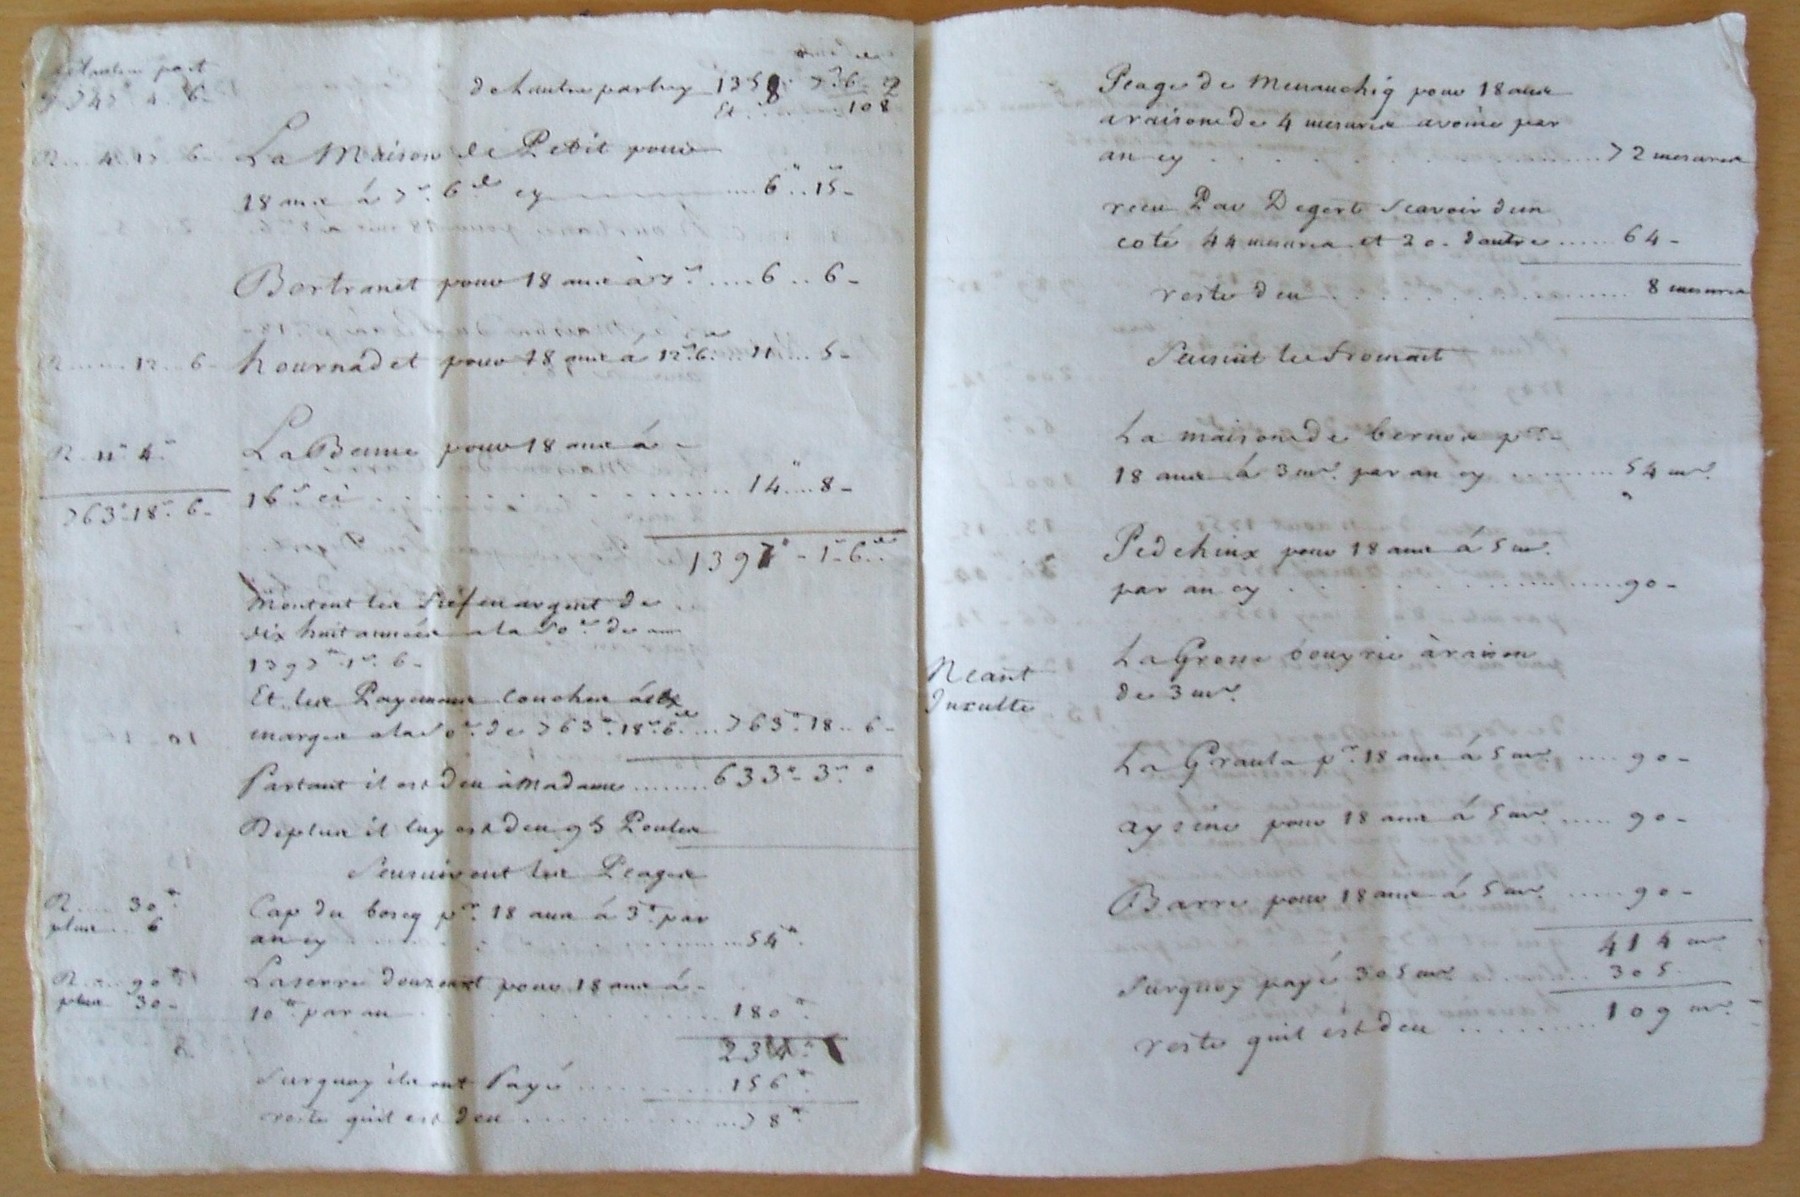 de lautre part cy 1358 .. 7 .. 6 - 2
Et ........ 108
R ... 4 .. 17 .. 6 - La Maison de Petit pour
18 ans á 7 s. 6 d. cy ........ 6 .. 15 -
Bertranet pour 18 ans à 7 s. .... 6 .. 6 -
R ....... 12 .. 6 - hournadet pour 18 ans á 12 s. 6 d. 11 ... 5 -
R .. 11 .. 4 .. La Beune pour 18 ans á -
16 s. ci ............ 14 .... 8 -
763 .. 18 .. 6 -
1397 - 1 - 6 d.
Montent les fief en argent de
dix huit années a la so.e de
1397 .. 1 .. 6 -
Et les Payemens couchés
marges a la so.e de 763 .. 18 .. 6 ... 763 .. 18 .. 6 -
Partant il est deu à Madame ....... 633 - 3 s. 0
De plus il luy est deu 95 Poules
Sensuivent les Peages
R .... 30 Cap du boscq p.r 18 ans á 3 par
plus .. 6 an cy ............ 54
R .... 90 Laserre pour 18 ans á -
plus 30 - 10 par an ............ 180
234
Surquoy ils ont Payé ........ 156
reste quil est deu ............ 78
Peage de Menauchig pour 18 ans
a raison de 4 mesures avoine par
an cy ............ 72 mesures
receu Par Degert Scavoir dun
coté 44 mesures et 20 . dautre ...... 64 -
reste deu ............ 8 mesures
Sensuit le froment
La maison de bernon p.r -
18 ans á 3 mes. par an cy ........ 54 mes.
Pedehinx pour 18 ans á 5 mes.
par an cy ............ 90 -
Neant La Grosse bouyrie à raison
Inculte de 3 mes.
La Graula p.r 18 ans á 5 mes. .... 90 -
aysine pour 18 ans á 5 mes. ..... 90 -
Barre pour 18 ans á 5 mes. ..... 90 -
414 mes.
Surquoy payé 305 mes. .... 305
reste quil est deu ........ 109 mes.